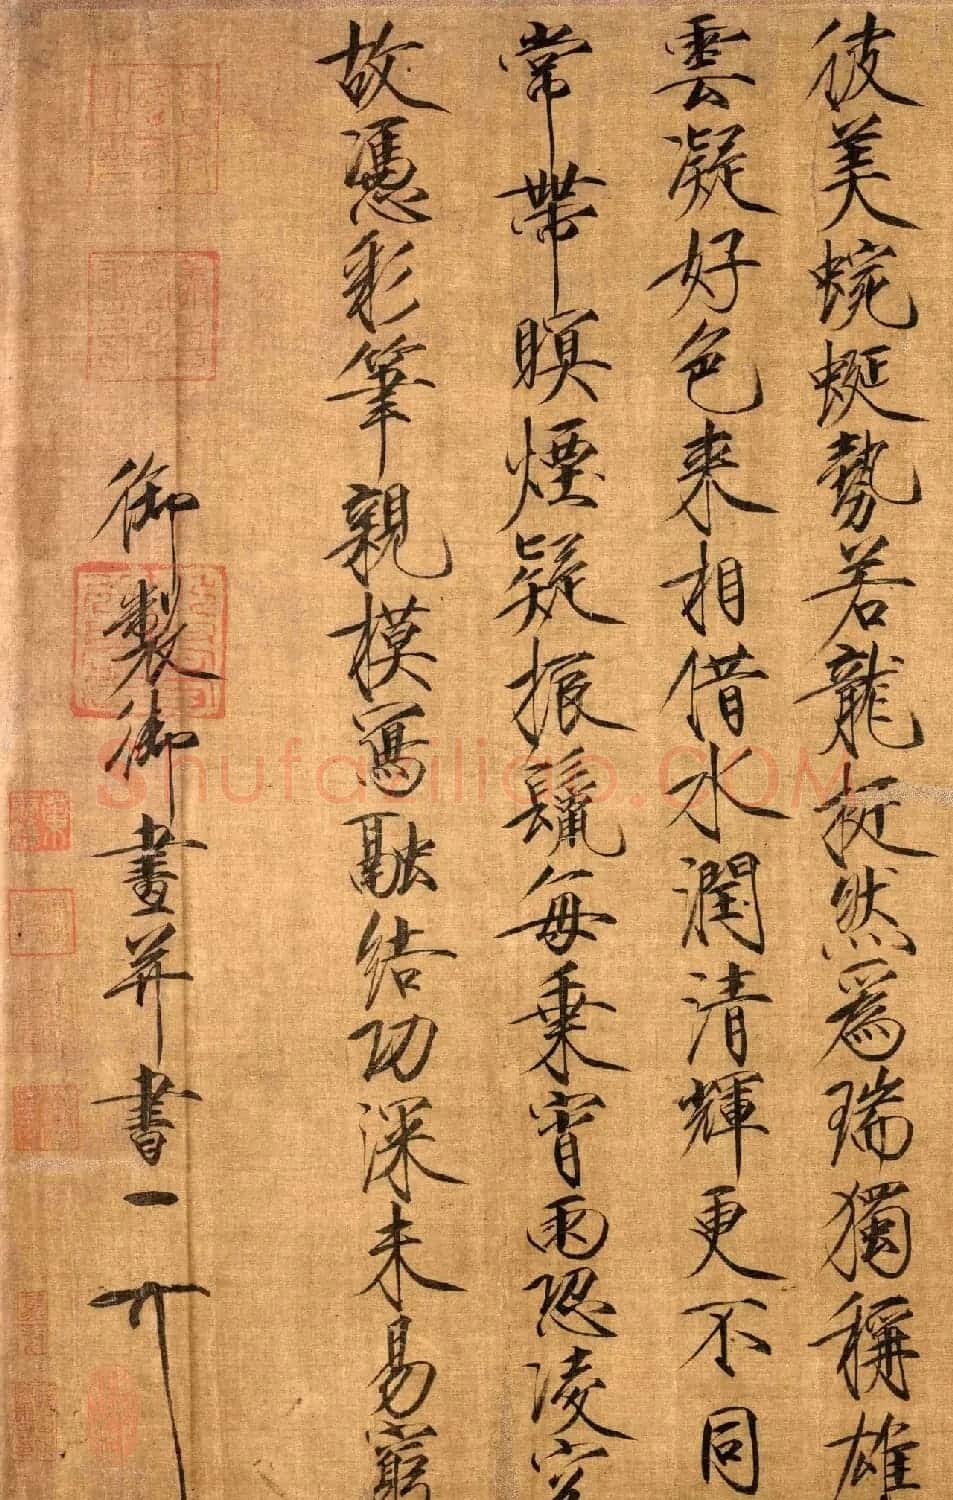 彼美蜿蜒勢若龍挺然為瑞獨稱雄
雲凝好色来相借水潤清輝更不同
常帶瞑煙疑振鬣每乗宵雨恐凌空
故憑彩筆親模寫融結功深未易窮
御製御畫并書
Shufaziliao.COM